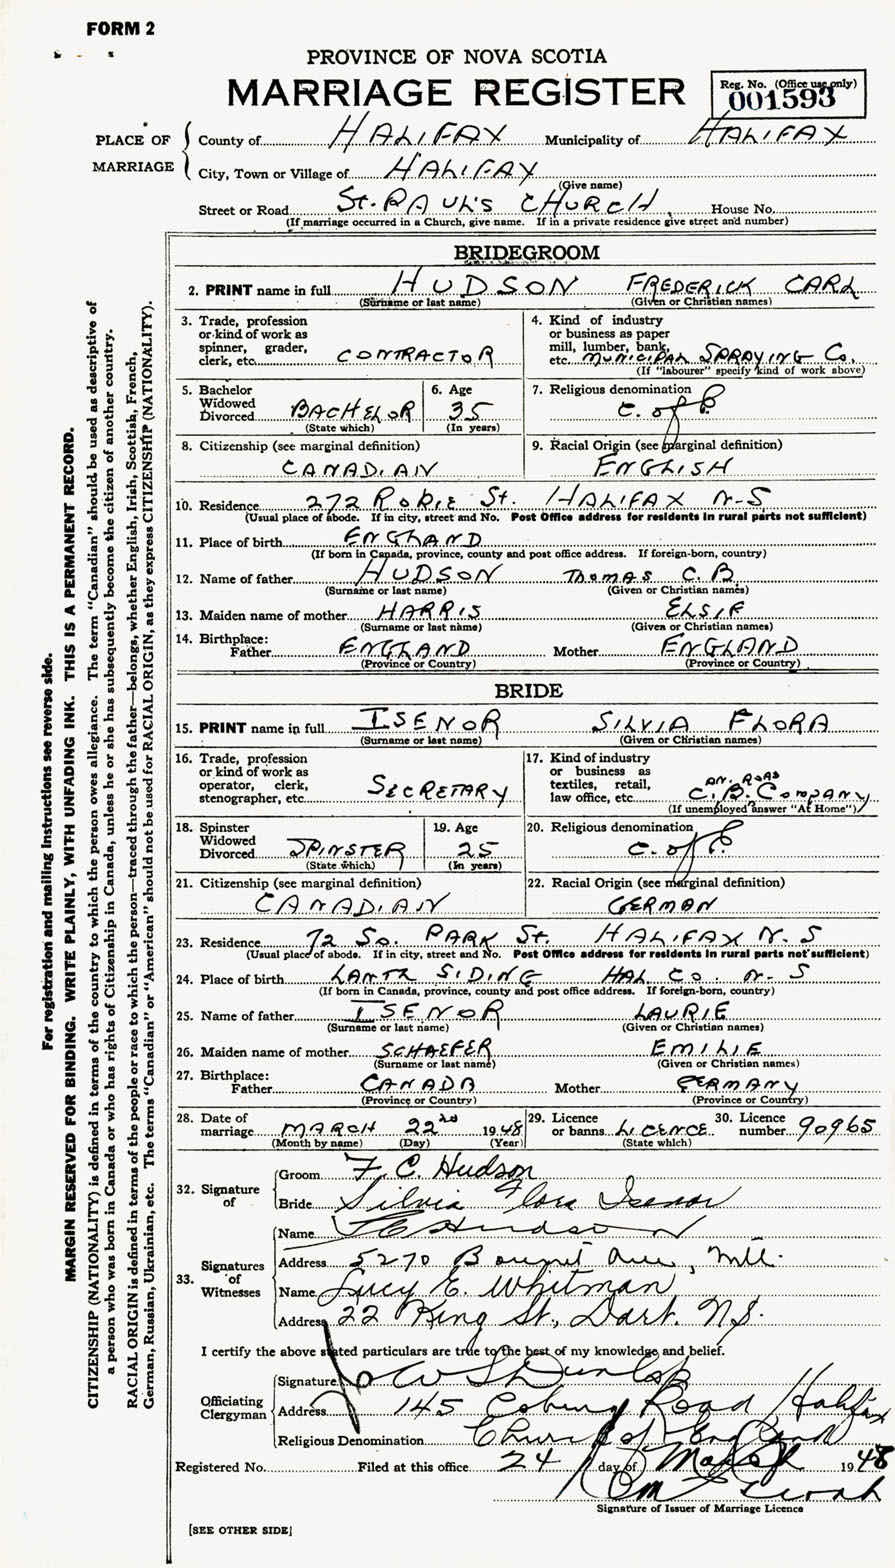 FORM 2
PROVINCE OF NOVA SCOTIA
MARRIAGE REGISTER
Reg. No. (Office use only)
001593
PLACE OF MARRIAGE
County of HALIFAX Municipality of HALIFAX
City, Town or Village of HALIFAX
(Give name)
Street or Road St. PAUL'S CHURCH House No.
(If marriage occurred in a Church, give name. If in a private residence give street and number)
BRIDEGROOM
2. PRINT name in full HUDSON FREDERICK CARL
(Surname or last name) (Given or Christian names)
3. Trade, profession
or kind of work as
spinner, grader,
clerk, etc. CONTRACTOR
4. Kind of industry
or business as paper
mill, lumber, bank,
etc. MUNICIPAL SPRAYING Co.
(If "labourer" specify kind of work above)
5. Bachelor
Widowed
Divorced BACHELOR
(State which)
6. Age
35
(In years)
7. Religious denomination
C. of E.
8. Citizenship (see marginal definition)
CANADIAN
9. Racial Origin (see marginal definition)
ENGLISH
10. Residence 272 ROBIE St. HALIFAX N.S
(Usual place of abode. If in city, street and No. Post Office address for residents in rural parts not sufficient)
11. Place of birth ENGLAND
(If born in Canada, province, county and post office address. If foreign-born, country)
12. Name of father HUDSON THOMAS C. B.
(Surname or last name) (Given or Christian names)
13. Maiden name of mother HARRIS ELSIE
(Surname or last name) (Given or Christian names)
14. Birthplace:
Father ENGLAND Mother ENGLAND
(Province or Country) (Province or Country)
BRIDE
15. PRINT name in full ISENOR SILVIA FLORA
(Surname or last name) (Given or Christian names)
16. Trade, profession
or kind of work as
operator, clerk,
stenographer, etc. SECRETARY
17. Kind of industry
or business as
textiles, retail,
law office, etc. C. B. COMPANY
(If unemployed answer "At Home")
18. Spinster
Widowed
Divorced SPINSTER
(State which)
19. Age
25
(In years)
20. Religious denomination
C. of E.
21. Citizenship (see marginal definition)
CANADIAN
22. Racial Origin (see marginal definition)
GERMAN
23. Residence 72 So. PARK St. HALIFAX N.S
(Usual place of abode. If in city, street and No. Post Office address for residents in rural parts not sufficient)
24. Place of birth LANTZ SIDING HAL CO. N.S
(If born in Canada, province, county and post office address. If foreign-born, country)
25. Name of father ISENOR LAURIE
(Surname or last name) (Given or Christian names)
26. Maiden name of mother SCHAEFER EMILIE
(Surname or last name) (Given or Christian names)
27. Birthplace:
Father CANADA Mother GERMANY
(Province or Country) (Province or Country)
28. Date of
marriage MARCH 22nd 1948
(Month by name) (Day) (Year)
29. Licence
or banns LICENCE
(State which)
30. Licence
number 90965
32. Signature of
Groom F. C. Hudson
Bride Silvia Flora Isenor
33. Signatures of Witnesses
Name Hudson
Address 5270 Ave, Mtl.
Name Lucy E. Whitman
Address 22 King St., Dart. N.S.
I certify the above stated particulars are true to the best of my knowledge and belief.
Officiating Clergyman
Signature W S Dunlop
Address 145 Coburg Road Halifax
Religious Denomination Church of England
Registered No. Filed at this office 24 day of March 1948
Signature of Issuer of Marriage Licence
[SEE OTHER SIDE]
For registration and mailing instructions see reverse side.
MARGIN RESERVED FOR BINDING. WRITE PLAINLY, WITH UNFADING INK. THIS IS A PERMANENT RECORD.
CITIZENSHIP (NATIONALITY) is defined in terms of the country to which the person owes allegiance. The term "Canadian" should be used as descriptive of
a person who was born in Canada or who has rights of Citizenship in Canada, unless he or she has subsequently become the citizen of another country.
RACIAL ORIGIN is defined in terms of the people or race to which the person—traced through the father—belongs, whether English, Irish, Scottish, French,
German, Russian, Ukrainian, etc. The terms "Canadian" or "American" should not be used for RACIAL ORIGIN, as they express CITIZENSHIP (NATIONALITY).